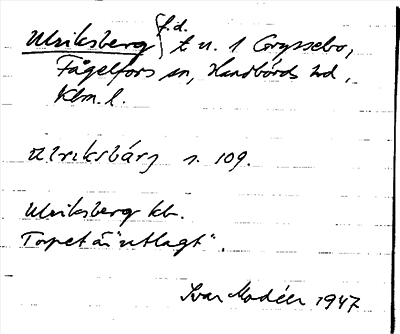 Ulriksberg f.d.
t u. 1 Gryssebo,
Fågelfors sn, Handbörds hd,
Klm. l.
Ulriksbärj s. 109.
Ulriksberg kb.
Torpet är "utlagt".
Ivar Modéer 1947